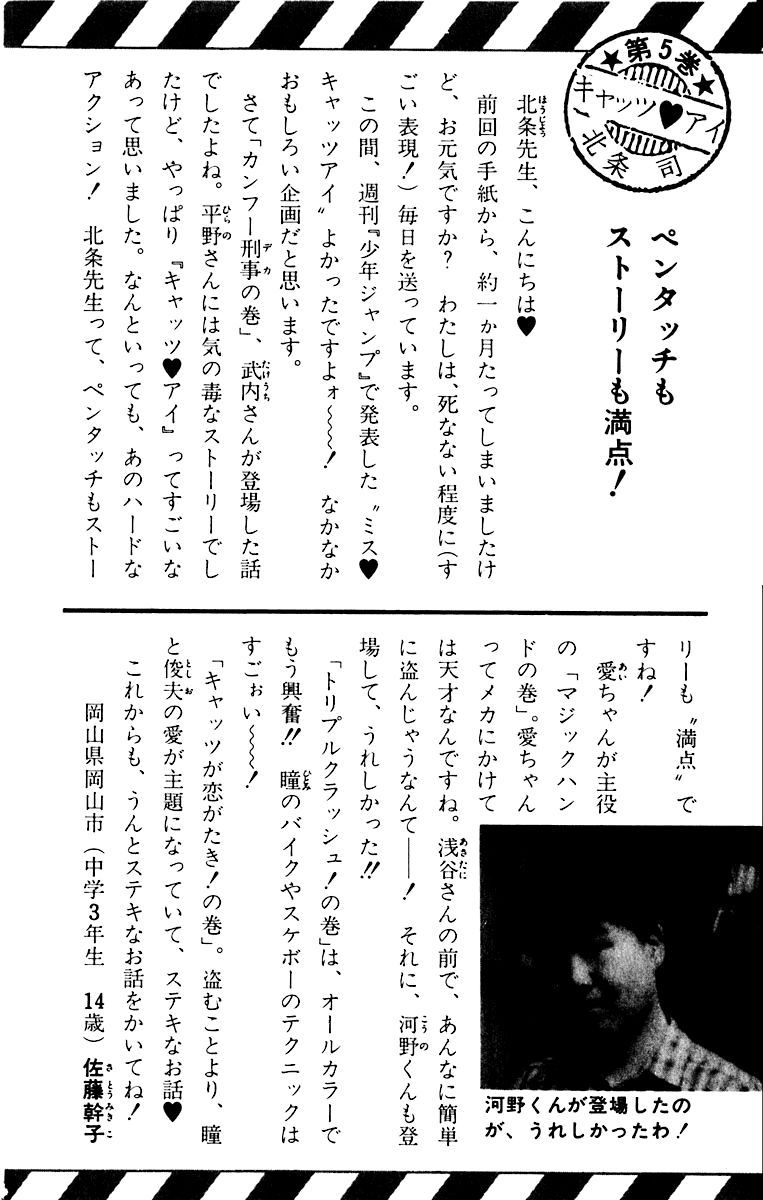 ★第5巻★
キャッツ♥アイ
北条司
ペンタッチも
ストーリーも満点！
北条先生、こんにちは♥
前回の手紙から、約一か月たってしまいましたけ
ど、お元気ですか？　わたしは、死なない程度に（す
ごい表現！）毎日を送っています。
この間、週刊『少年ジャンプ』で発表した〝ミス♥
キャッツアイ〟よかったですよォ〜〜〜！　なかなか
おもしろい企画だと思います。
さて「カンフー刑事の巻」、武内さんが登場した話
でしたよね。平野さんには気の毒なストーリーでし
たけど、やっぱり『キャッツ♥アイ』ってすごいな
あって思いました。なんといっても、あのハードな
アクション！　北条先生って、ペンタッチもストー
リーも〝満点〟で
すね！
愛ちゃんが主役
の「マジックハン
ドの巻」。愛ちゃん
ってメカにかけて
は天才なんですね。浅谷さんの前で、あんなに簡単
に盗んじゃうなんて――！　それに、河野くんも登
場して、うれしかった!!
「トリプルクラッシュ！の巻」は、オールカラーで
もう興奮!!　瞳のバイクやスケボーのテクニックは
すごぉい〜〜〜！
「キャッツが恋がたき！の巻」。盗むことより、瞳
と俊夫の愛が主題になっていて、ステキなお話♥
これからも、うんとステキなお話をかいてね！
岡山県岡山市（中学3年生　14歳）佐藤幹子
河野くんが登場したの
が、うれしかったわ！